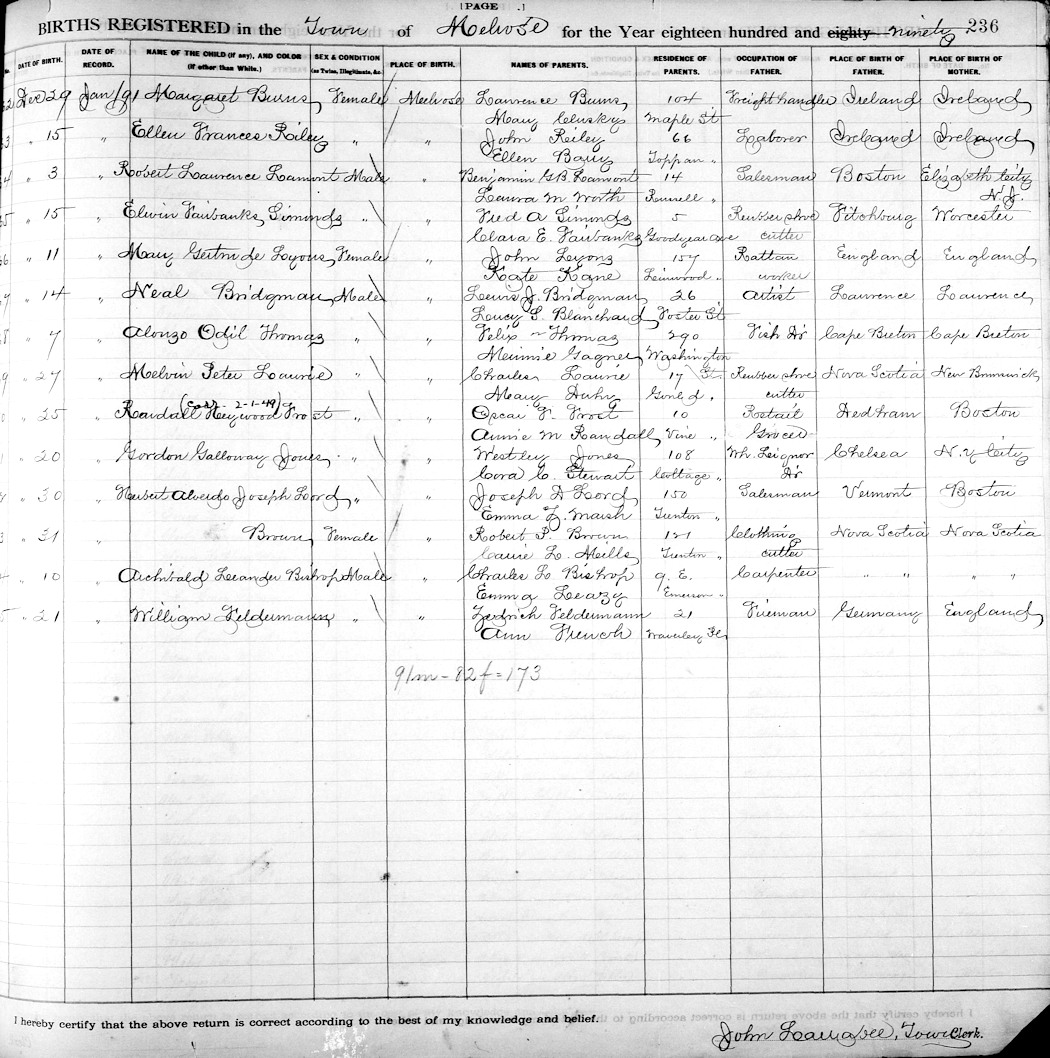 [PAGE .]
BIRTHS REGISTERED in the Town of Melrose for the Year eighteen hundred and eighty ninety 236
DATE OF BIRTH. DATE OF RECORD. NAME OF THE CHILD (if any), AND COLOR (if other than White.) SEX & CONDITION (as Twins, Illegitimate, &c. PLACE OF BIRTH. NAMES OF PARENTS. RESIDENCE OF PARENTS. OCCUPATION OF FATHER. PLACE OF BIRTH OF FATHER. PLACE OF BIRTH OF MOTHER.
2 Dec 29 Jan /91 Margaret Burns Female Melrose Lawrence Burns 104 Freight handler Ireland Ireland
Mary Clusky Maple St
3 " 15 " Ellen Frances Riley " " John Riley 66 Laborer Ireland Ireland
Ellen Barry Toppan "
4 " 3 " Robert Lawrence Lamont Male " Benjamin G.B. Lamont 14 Salesman Boston Elizabeth City
Laura M Worth Russell " N.J.
5 " 15 " Elwin Fairbanks Simonds " " Fred A Simonds 5 Rubber shoe Fitchburg Worcester
Clara E. Fairbanks Goodyear ave cutter
6 " 11 " May Gertrude Lyons Female " John Lyons 157 Rattan England England
Kate Kane Linwood " worker
7 " 14 " Neal Bridgman Male " Lewis J. Bridgman 26 Artist Lawrence Lawrence
Lucy S. Blanchard Foster St
8 " 7 " Alonzo Odil Thomas " " Felix Thomas 290 Fish Dr Cape Breton Cape Breton
Minnie Gagney Washington
9 " 27 " Melvin Peter Laurie " " Charles Laurie 17 St. Rubber shoe Nova Scotia New Brunswick
Mary Duhy cutter
(Corr. - 2-1-49)
0 " 25 " Randall Heywood Frost " " Oscar F. Frost 10 Retail Dedham Boston
Annie M Randall Vine " Grocer
1 " 20 " Gordon Galloway Jones " " Westley Jones 108 Wh. Leignor Chelsea N.Y City
Cora C. Stewart Cottage " Dr
" 30 " Joseph Lord " " Joseph D Lord 150 Salesman Vermont Boston
Emma Z. Marsh Trenton "
3 " 31 " Brown Female " Robert P. Brown 121 Clothing Nova Scotia Nova Scotia
Carrie L. Mills Trenton " cutter
" 10 " Archibald Leander Bishop Male " Charles L Bishop 9. E. Carpenter " " " "
Emma Leazy Emerson "
5 " 21 " William Feldemann " " Fedrich Feldemann 21 Fireman Germany England
Ann French Waverley Pl
91m - 82f = 173
I hereby certify that the above return is correct according to the best of my knowledge and belief.
John Larrabee, Town Clerk.